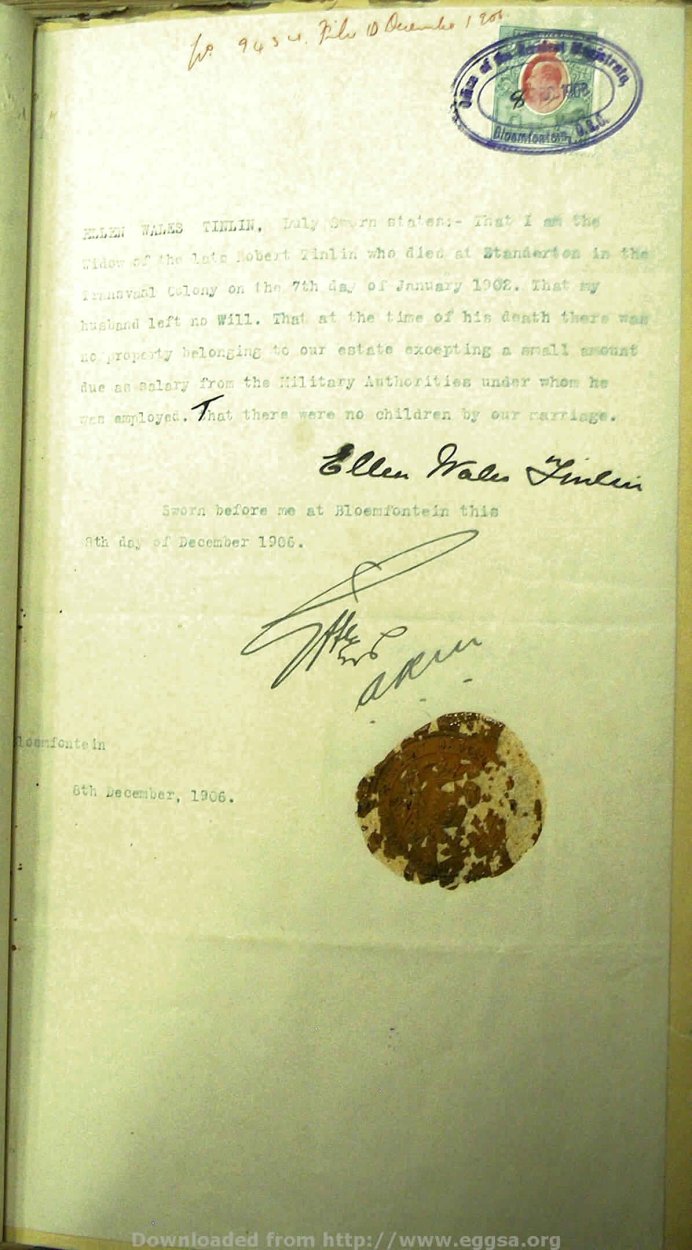 9434. File 10 December 1906.
Office of the Resident Magistrate,
8 DEC 1906
Bloemfontein, O.R.C.
ELLEN WALES TINLIN, Duly Sworn states:- That I am the
Widow of the late Robert Tinlin who died at Standerton in the
Transvaal Colony on the 7th day of January 1902. That my
husband left no Will. That at the time of his death there was
no property belonging to our estate excepting a small amount
due as salary from the Military Authorities under whom he
was employed. That there were no children by our marriage.
Ellen Wales Tinlin
Sworn before me at Bloemfontein this
8th day of December 1906.
A.R.M.
Bloemfontein
8th December, 1906.
Downloaded from http://www.eggsa.org